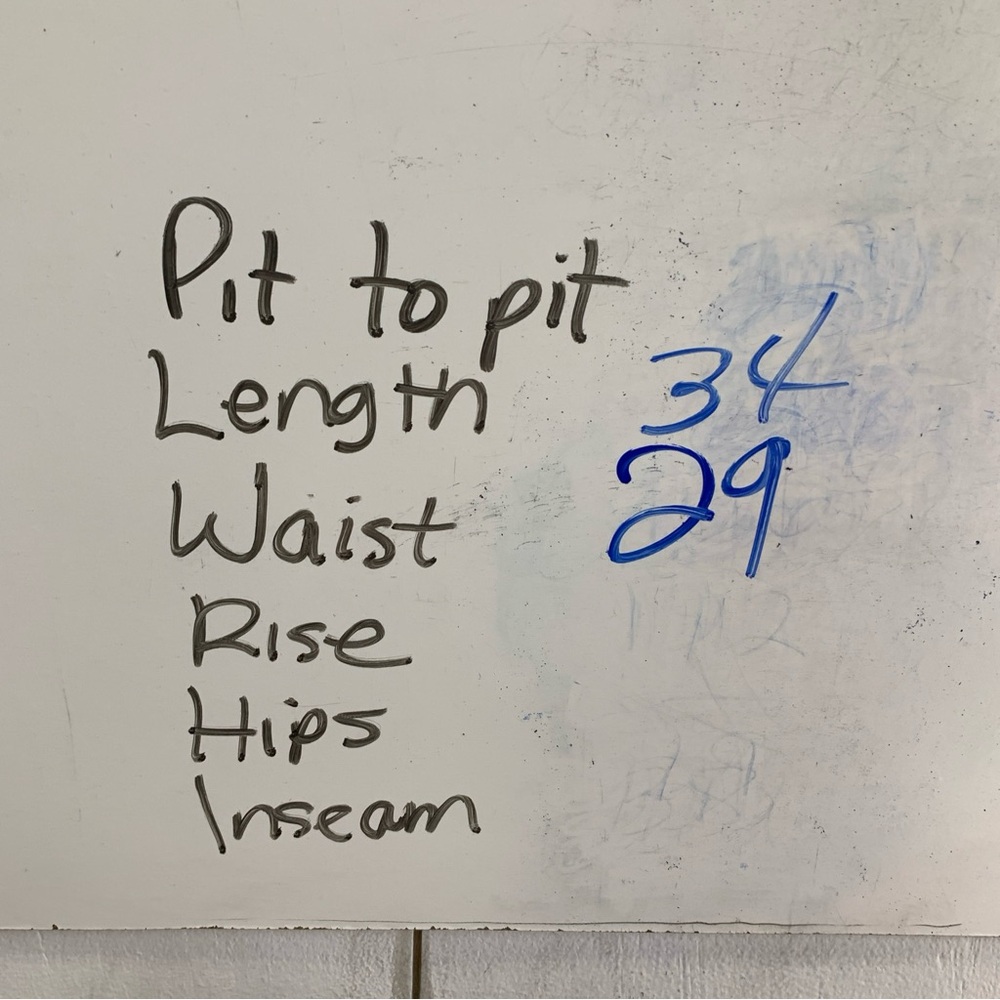 Pit to pit
Length 34
Waist 29
Rise
Hips
Inseam